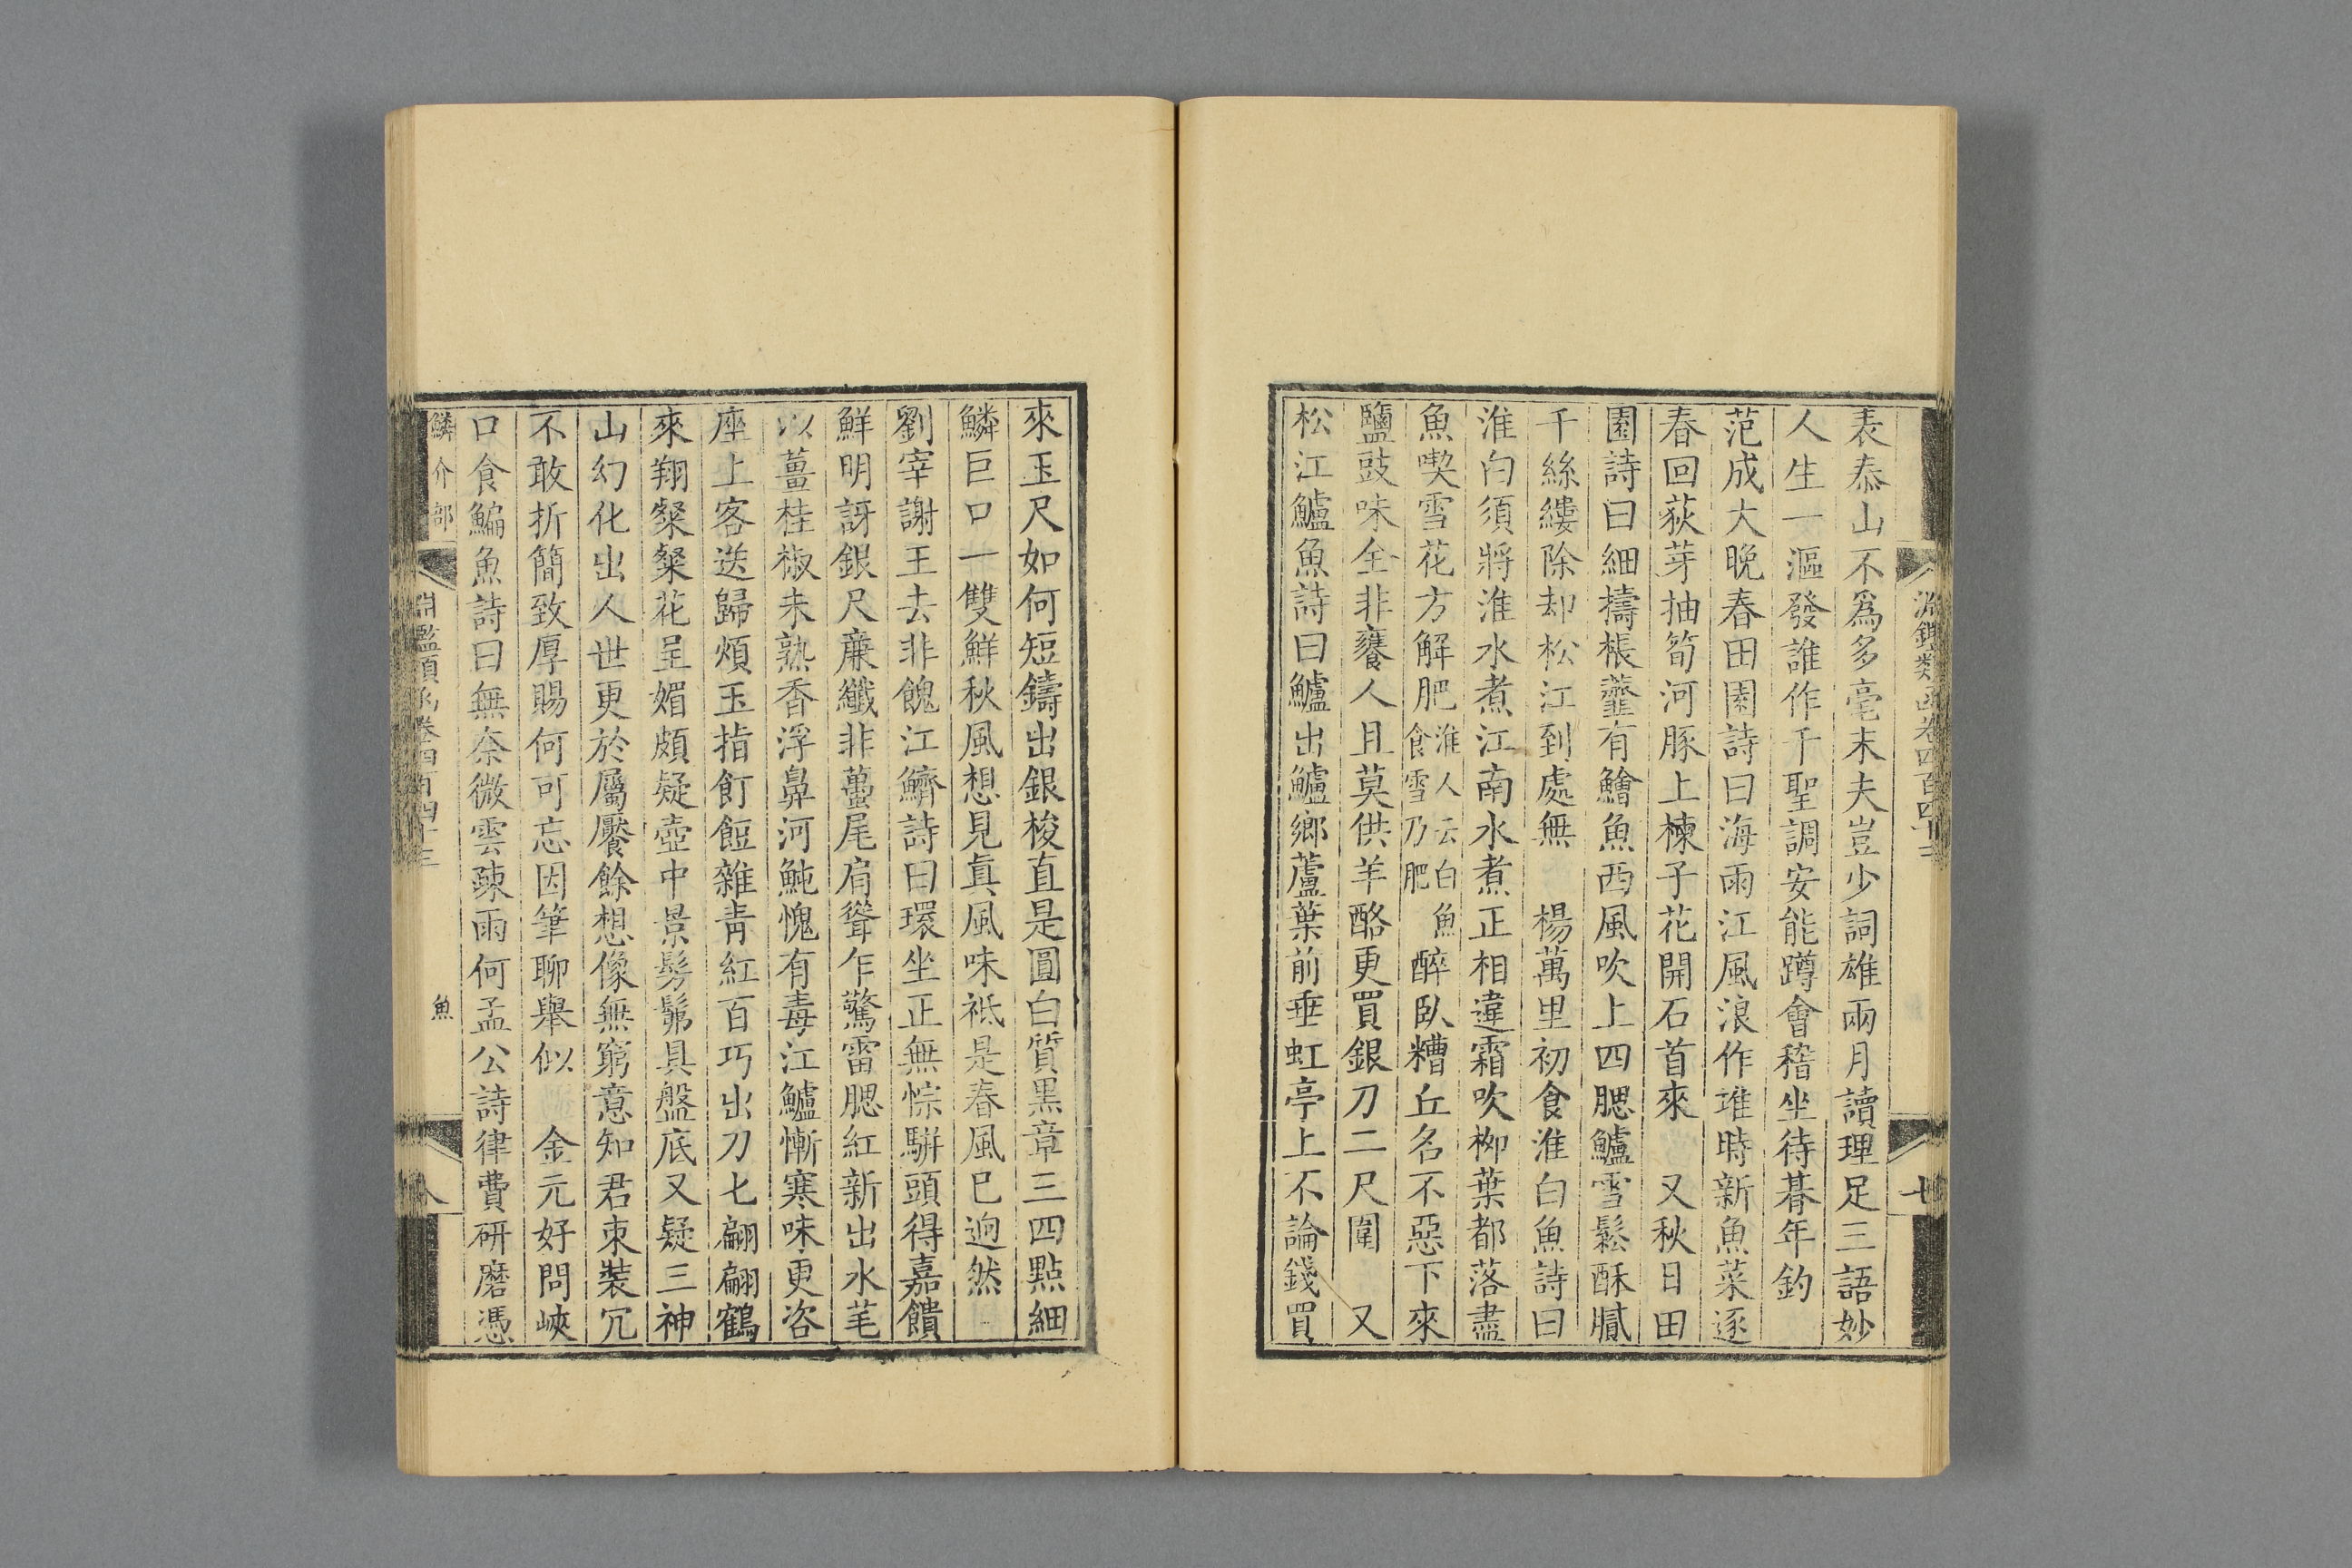 淵鑑類函卷四百四十三
七
表泰山不爲多毫末夫豈少詞雄兩月讀理足三語妙
人生一漚發誰作千聖調安能蹲會稽坐待暮年釣
范成大晚春田園詩曰海雨江風浪作堆時新魚菜逐
春回荻芽抽筍河豚上楝子花開石首來　又秋日田
園詩曰細擣棖虀有鱠魚西風吹上四腮鱸雪鬆酥膩
千絲縷除却松江到處無　楊萬里初食淮白魚詩曰
淮白須將淮水煮江南水煮正相違霜吹柳葉都落盡
魚喫雪花方解肥淮人云白魚食雪乃肥醉臥糟丘名不惡下來
鹽豉味全非饔人且莫供羊酪更買銀刀二尺圍　又
松江鱸魚詩曰鱸出鱸鄉蘆葉前垂虹亭上不論錢買
來玉尺如何短鑄出銀梭直是圓白質黑章三四點細
鱗巨口一雙鮮秋風想見真風味祗是春風已逈然
劉宰謝王去非餽江鱭詩曰環坐正無悰駢頭得嘉饋
鮮明訝銀尺廉纖非蠆尾肩聳乍驚雷腮紅新出水芼
以薑桂椒未熟香浮鼻河魨愧有毒江鱸慚寒味更咨
座上客送歸煩玉指飣餖雜青紅百巧出刀匕翩翩鶴
來翔粲粲花呈媚頗疑壺中景髣髴具盤底又疑三神
山幻化出人世更於屬饜餘想像無窮意知君束裝冗
不敢折簡致厚賜何可忘因筆聊舉似　金元好問峽
口食鯿魚詩曰無奈微雲疎雨何孟公詩律費研磨憑
鱗介部
淵鑑類函卷四百四十三
魚
八